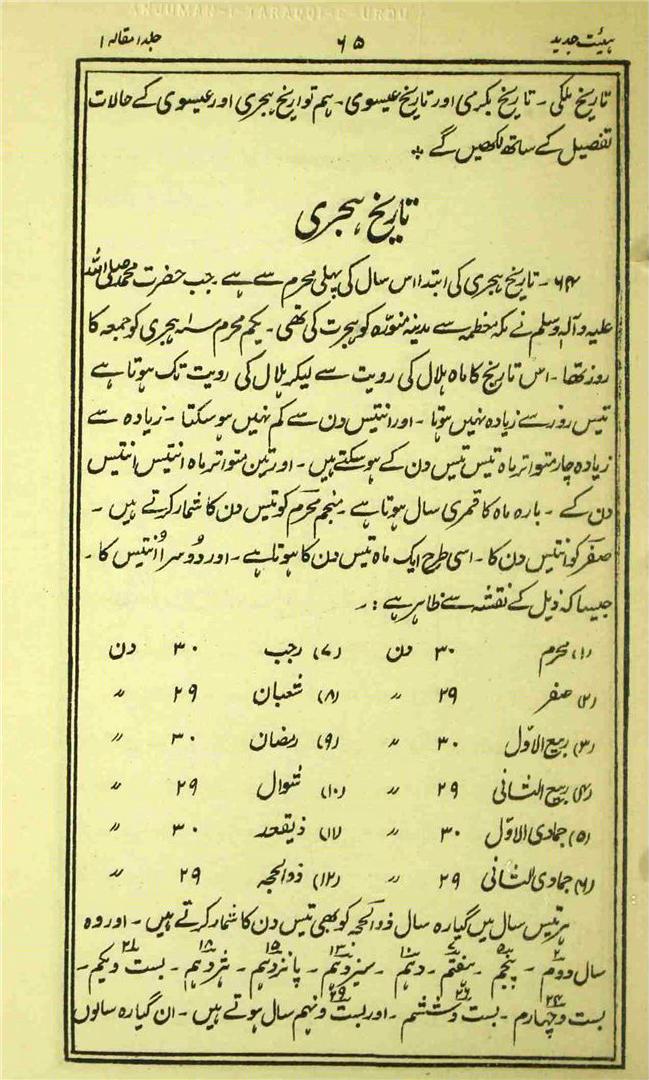 ANJUMAN-I-TARAQQI-E-URDU
ہیئت جدید
۶۵
جلد ا مقالہ ا
تاریخ ملکی ۔ تاریخ بکرمی اور تاریخ عیسوی ۔ ہم تواریخ ہجری اور عیسوی کے حالات
تفصیل کے ساتھ لکھیں گے
تاریخ ہجری
۶۴ ۔ تاریخ ہجری کی ابتدا اس سال کی پہلی محرم سے ہے جب حضرت محمد صلی اللہ
علیہ وآلہ وسلم نے مکہ معظمہ سے مدینہ منورہ کو ہجرت کی تھی ۔ یکم محرم سنہ ۱ ہجری کو جمعہ کا
روز تھا ۔ اس تاریخ کا ماہ ہلال کی رویت سے لیکر ہلال کی رویت تک ہوتا ہے
تیس روز سے زیادہ نہیں ہوتا ۔ اور انتیس دن سے کم نہیں ہو سکتا ۔ زیادہ سے
زیادہ چار متواتر ماہ تیس تیس دن کے ہو سکتے ہیں ۔ اور تین متواتر ماہ انتیس انتیس
دن کے ۔ بارہ ماہ کا قمری سال ہوتا ہے ۔ منجم محرم کو تیس دن کا شمار کرتے ہیں ۔
صفر کو انتیس دن کا ۔ اسی طرح ایک ماہ تیس دن کا ہوتا ہے ۔ اور دوسرا انتیس کا ۔
جیسا کہ ذیل کے نقشہ سے ظاہر ہے : ۔
(۱) محرم ۳۰ دن (۷) رجب ۳۰ دن
(۲) صفر ۲۹ ״ (۸) شعبان ۲۹ ״
(۳) ربیع الاوّل ۳۰ ״ (۹) رمضان ۳۰ ״
(۴) ربیع الثانی ۲۹ ״ (۱۰) شوال ۲۹ ״
(۵) جمادی الاوّل ۳۰ ״ (۱۱) ذیقعد ۳۰ ״
(۶) جمادی الثانی ۲۹ ״ (۱۲) ذوالحجہ ۲۹ ״
ہر تیس سال میں گیارہ سال ذوالحجہ کو بھی تیس دن کا شمار کرتے ہیں ۔ اور وہ
سال دوم ۲ ۔ پنجم ۵ ۔ ہفتم ۷ ۔ دہم ۱۰ ۔ سیزدہم ۱۳ ۔ پانزدہم ۱۵ ۔ ہژدہم ۱۸ ۔ بست ویکم ۲۱ ۔
بست وچہارم ۲۴ ۔ بست وششم ۲۶ ۔ اور بست ونہم ۲۹ سال ہوتے ہیں ۔ ان گیارہ سالوں